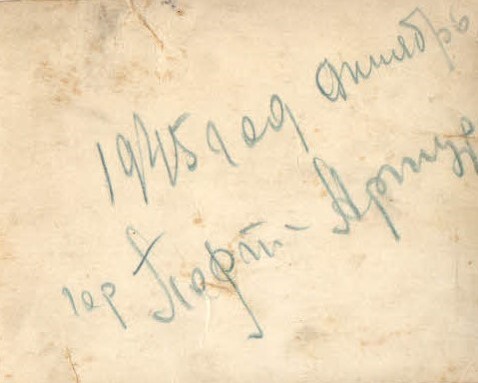 1945 год октябрь
гор Порт-Артур